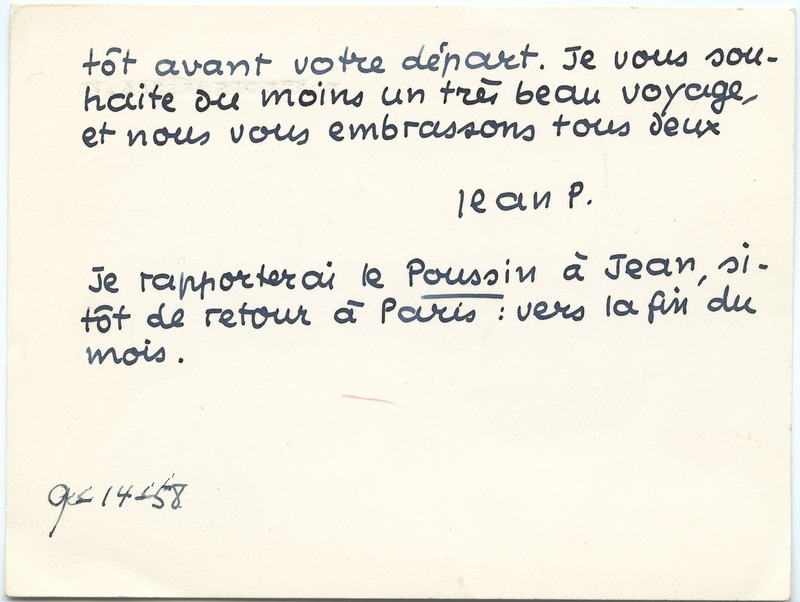 tôt avant votre départ. Je vous sou-
haite du moins un très beau voyage,
et nous vous embrassons tous deux
Jean P.
Je rapporterai le Poussin à Jean, si-
tôt de retour à Paris : vers la fin du
mois.
9-14-58